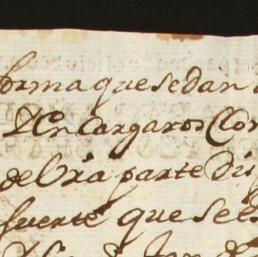 forma que se dan
Y Encargaros Con
de Vra parte dis
fuerte que se es